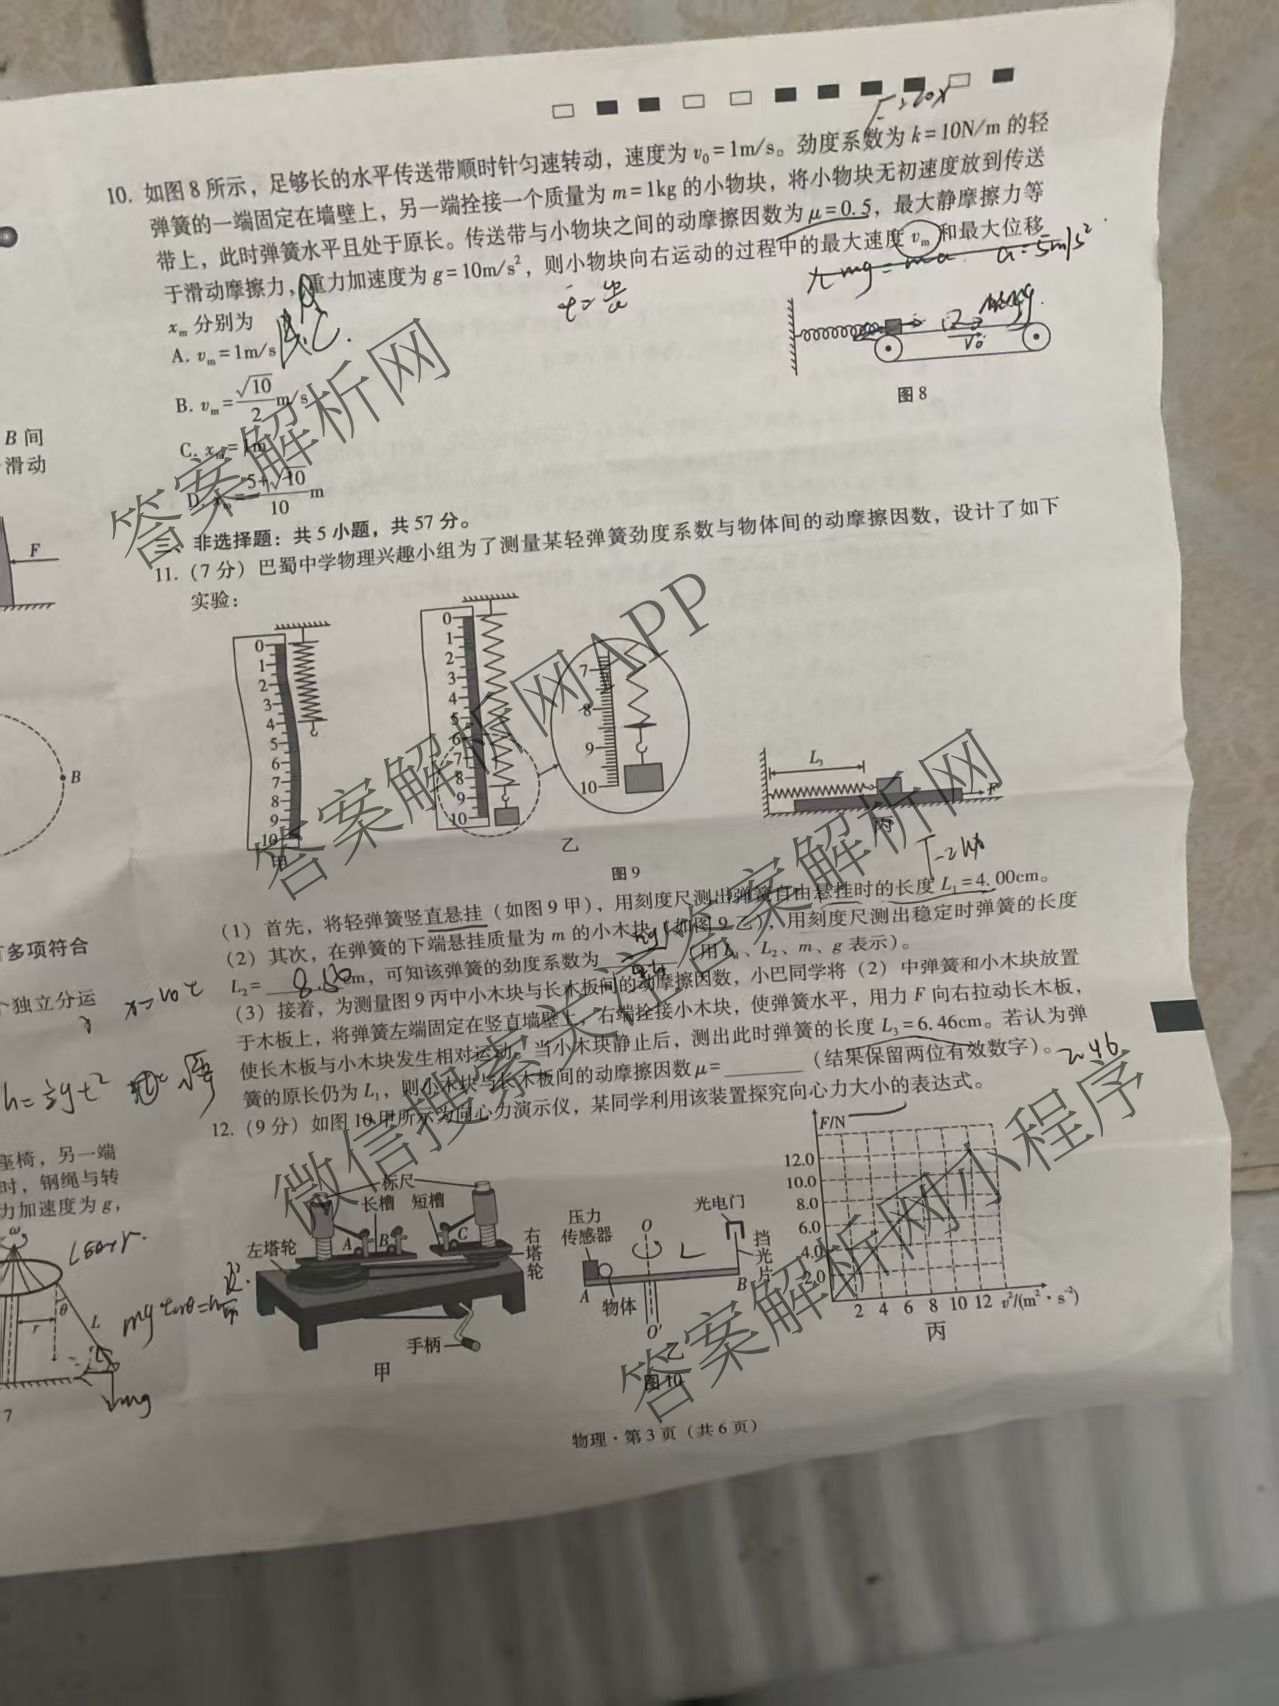 10. 如图8所示，足够长的水平传送带顺时针匀速转动，速度为v₀=1m/s。劲度系数为k=10N/m的轻
弹簧的一端固定在墙壁上，另一端拴接一个质量为m=1kg的小物块，将小物块无初速度放到传送
带上，此时弹簧水平且处于原长。传送带与小物块之间的动摩擦因数为μ=0.5，最大静摩擦力等
于滑动摩擦力，重力加速度为g=10m/s²，则小物块向右运动的过程中的最大速度vₘ和最大位移
xₘ分别为
A. vₘ=1m/s
B. vₘ=√10/2 m/s
C. xₘ=1m
D. xₘ=(5+√10)/10 m
F=20x
a=5m/s²
v₀
图8
三、非选择题：共5小题，共57分。
11.（7分）巴蜀中学物理兴趣小组为了测量某轻弹簧劲度系数与物体间的动摩擦因数，设计了如下
实验：
0 1 2 3 4 5 6 7 8 9 10
甲
0 1 2 3 4 5 6 7 8 9 10
7 8 9 10
乙
L₃
F
丙
图9
（1）首先，将轻弹簧竖直悬挂（如图9甲），用刻度尺测出弹簧自由悬挂时的长度L₁=4.00cm。
（2）其次，在弹簧的下端悬挂质量为m的小木块（如图9乙），用刻度尺测出稳定时弹簧的长度
L₂=8.50cm，可知该弹簧的劲度系数为______（用L₁、L₂、m、g表示）。
（3）接着，为测量图9丙中小木块与长木板间的动摩擦因数，小巴同学将（2）中弹簧和小木块放置
于木板上，将弹簧左端固定在竖直墙壁上，右端拴接小木块，使弹簧水平，用力F向右拉动长木板，
使长木板与小木块发生相对运动。当小木块静止后，测出此时弹簧的长度L₃=6.46cm。若认为弹
簧的原长仍为L₁，则小木块与长木板间的动摩擦因数μ=______（结果保留两位有效数字）。
2.46
12.（9分）如图10甲所示为向心力演示仪，某同学利用该装置探究向心力大小的表达式。
标尺
长槽 短槽
A B C
左塔轮
右塔轮
手柄
甲
压力
传感器
光电门
挡光片
O
L
A
B
物体
O′
乙
图10
F/N
12.0
10.0
8.0
6.0
4.0
2.0
2 4 6 8 10 12 v²/(m²·s⁻²)
丙
物理·第3页（共6页）
B间
滑动
F
B
有多项符合
个独立分运
x=v₀t
h=½gt²
座椅，另一端
时，钢绳与转
力加速度为g，
ω
θ
L
r
mg
7
答案解析网
答案解析网APP
微信搜索关注答案解析网
答案解析网小程序